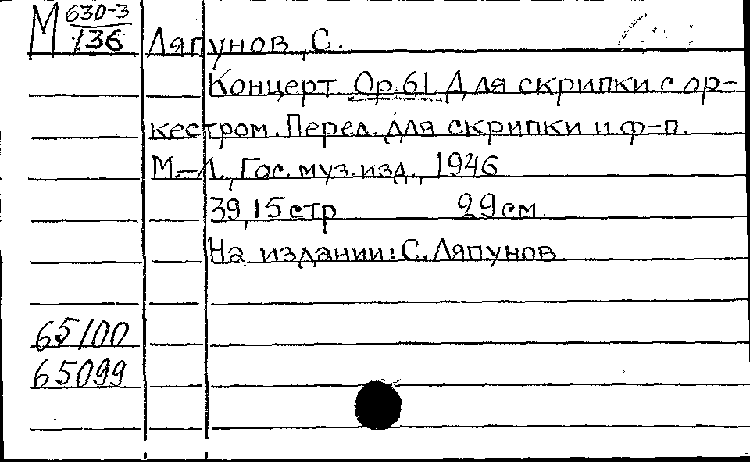 М 630-3
136
Ляпунов, С.
Концерт. Ор.61. Для скрипки с ор-
кестром. Перел. для скрипки и ф-п.
М.-Л., Гос. муз. изд., 1946
39, 15 стр 29 см
На издании: С. Ляпунов
65100
65099